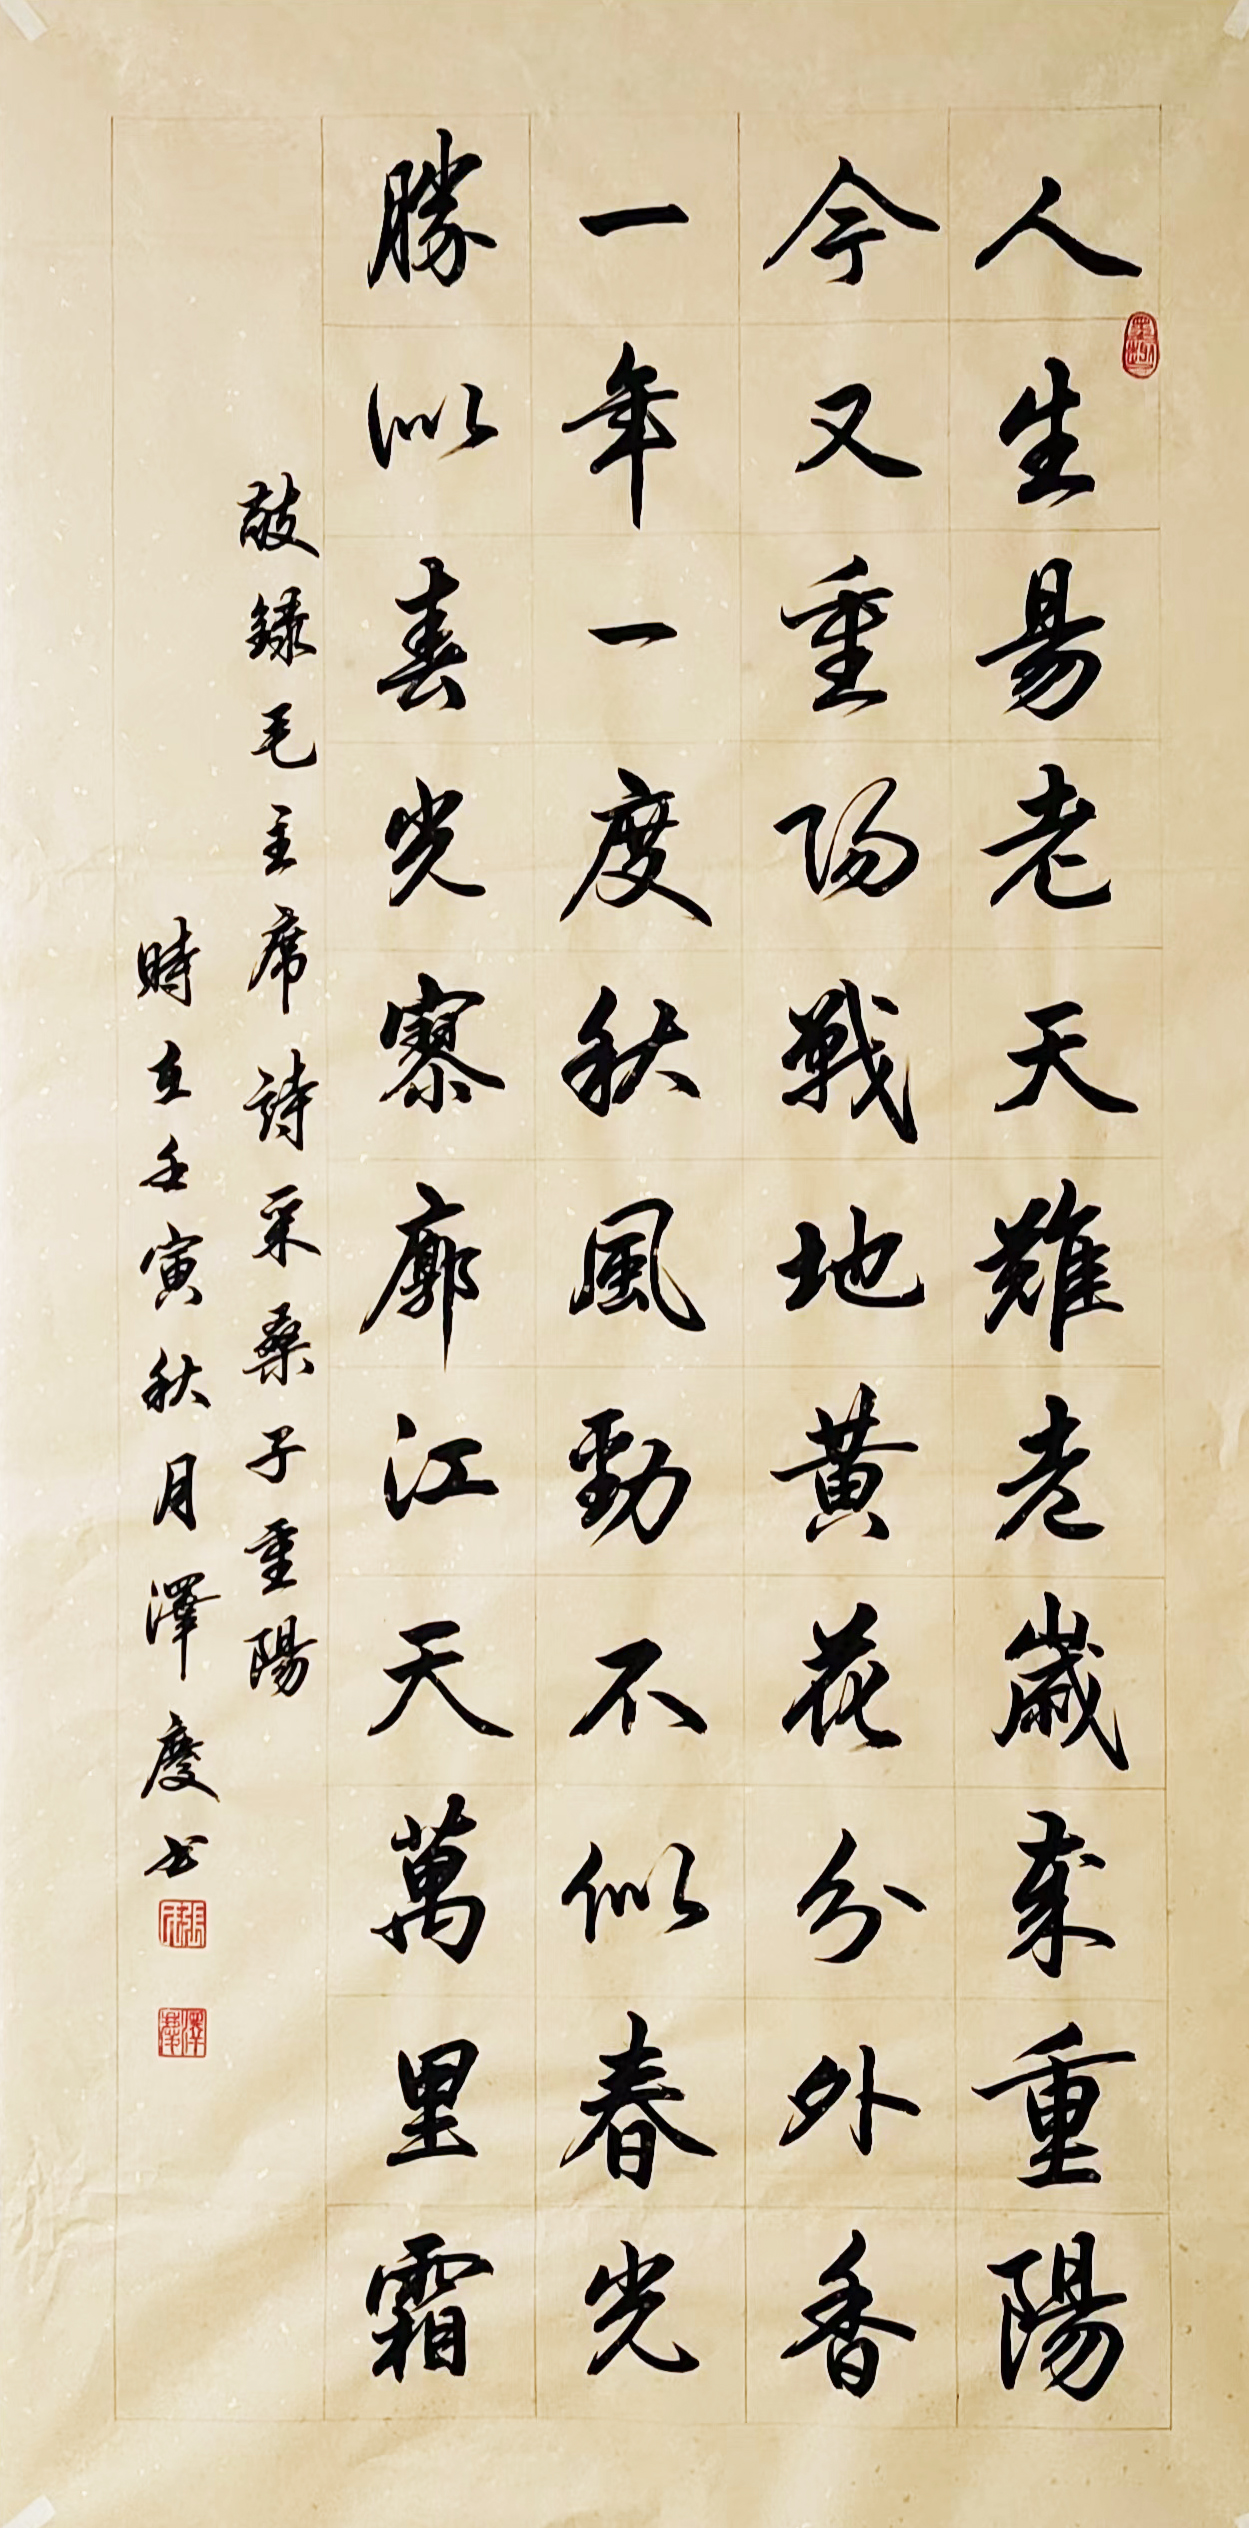 人生易老天難老歲歲重陽
今又重陽戰地黃花分外香
一年一度秋風勁不似春光
勝似春光寥廓江天萬里霜
敬錄毛主席詩采桑子重陽
時在壬寅秋月澤慶書